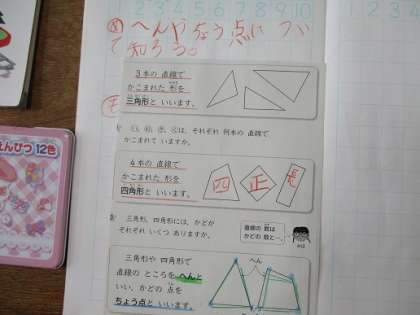 1 2 3 4 5 6 7 8 9 10
1 2 3 4
め へんやちょう点につい
て 知ろう。
3本の 直線で
かこまれた 形を
三角形と いいます。
も
は、それぞれ 何本の 直線で
かこまれて いますか。
4本の 直線で
かこまれた 形を
四角形と いいます。
四 正 長
三角形、四角形には、かどが
それぞれ いくつ ありますか。
直線の 数は
かどの 数と…。
三角形や 四角形で
直線の ところを へんと
いい、かどの 点を
ちょう点と いいます。
へん
えんぴつ 12色